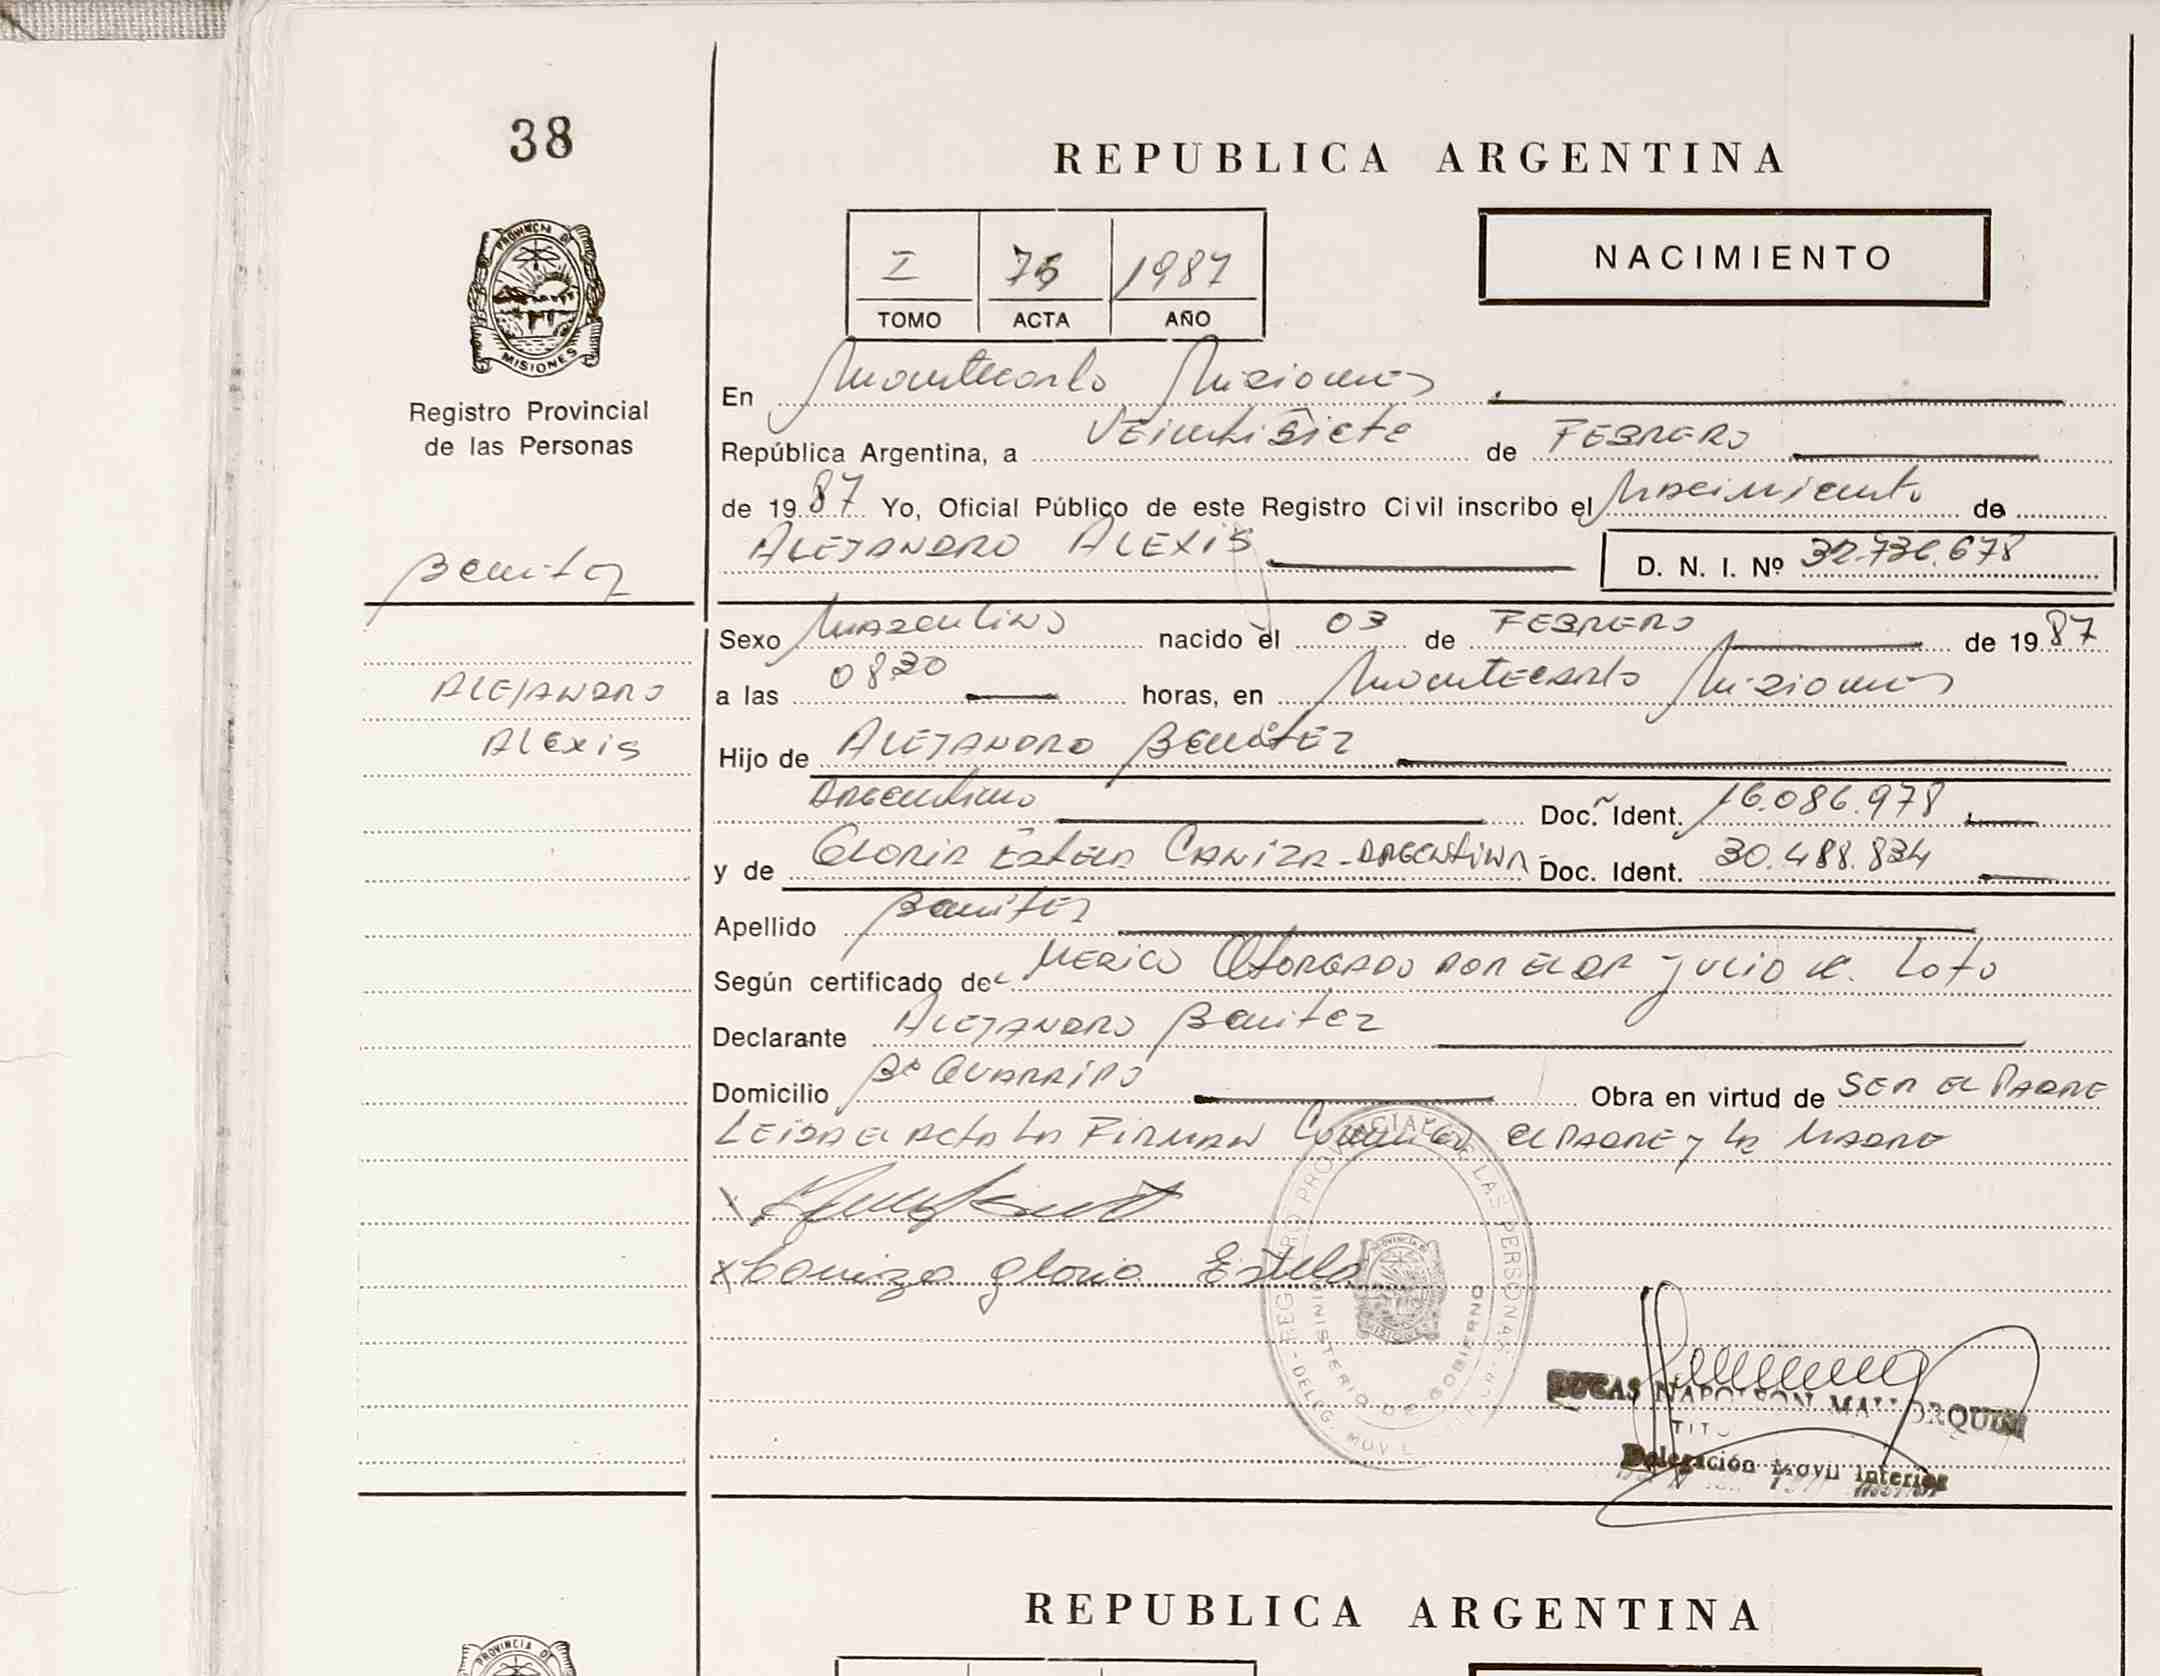 38
PROVINCIA DE
MISIONES
Registro Provincial
de las Personas
REPUBLICA ARGENTINA
I 75 1987
TOMO ACTA AÑO
NACIMIENTO
En Montecarlo Misiones
República Argentina, a Veintisiete de FEBRERO
de 1987 Yo, Oficial Público de este Registro Civil inscribo el Nacimiento de
ALEJANDRO ALEXIS D. N. I. Nº 32.736.678
Benitez
Sexo Masculino nacido el 03 de FEBRERO de 1987
ALEJANDRO
a las 0830 horas, en Montecarlo Misiones
Alexis
Hijo de ALEJANDRO BenitEz
Argentino Doc. Ident. 16.086.978
y de GLORIA ESTELA CANIZA - ARGENTINA - Doc. Ident. 30.488.834
Apellido Benitez
Según certificado de MEDICO OTORGADO POR EL DR JULIO Loto
Declarante ALEJANDRO Benitez
Domicilio Bº Obra en virtud de SER EL PADRE
LEIDA EL ACTA LA FIRMAN EL PADRE y LA MADRE
x Caniza Gloria Estela
REGISTRO PROVINCIAL DE LAS PERSONAS
MINISTERIO DE GOBIERNO
DELEG. MOVIL
PROVINCIA DE
MISIONES
LUCAS NAPOLEON MALLORQUIN
Delegación Movil Interior
REPUBLICA ARGENTINA
PROVINCIA D